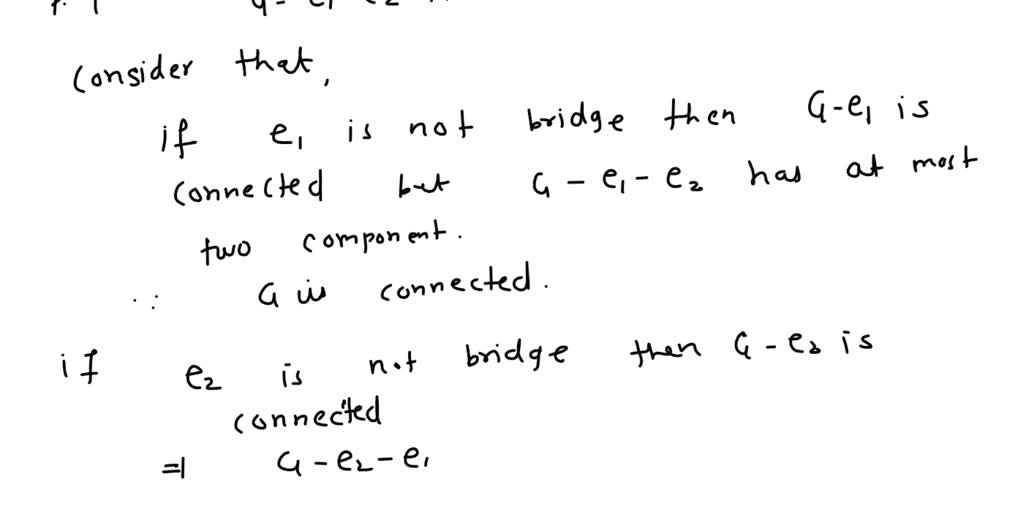 Consider that,
if e₁ is not bridge then G-e₁ is
connected but G - e₁ - e₂ has at most
two component.
∵ G is connected.
if e₂ is not bridge then G - e₂ is
connected
⇒ G - e₂ - e₁